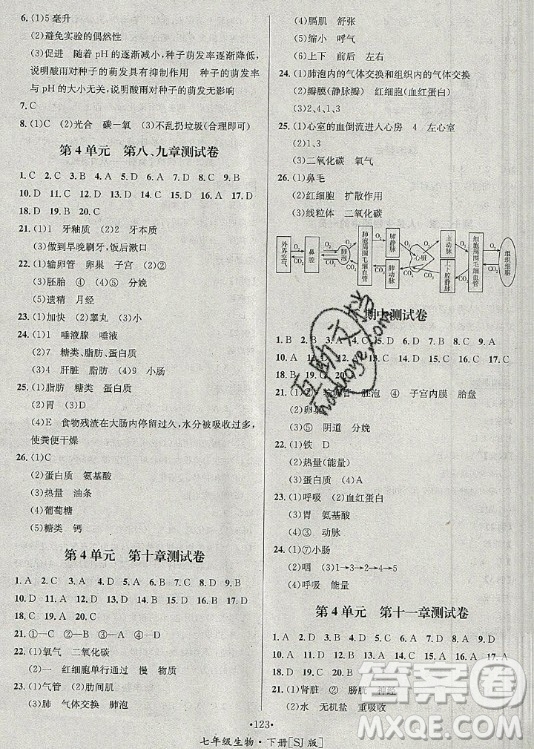 6. (1)5 毫升
(2)避免实验的偶然性
(3)促进　随着 pH 的逐渐减小,种子萌发率逐渐减小,
说明酸雨对种子的萌发具有抑制作用　种子的萌发率
与 pH 大小无关,说明酸雨对种子萌发无影响
7. C
8. (1)C　(2)光合　碳—氧　(3)不乱扔垃圾(合理即可)
第 4 单元　第八、九章测试卷
1. C　2. B　3. D　4. C　5. C　6. B　7. C　8. D　9. D
10. D　11. D　12. C　13. D　14. C　15. A　16. D　17. D
18. D　19. D　20. A
21. (1)牙釉质　(2)2　牙本质
(3)如做到早晚刷牙,饭后漱口等
22. (1)输卵管　卵巢　子宫　(2)④　③
(3)胚胎　胎盘　(4)④
(5)遗精　月经
23. (1)2　附睾　(2)睾丸　(3)2
24. (1)1　唾液腺　唾液
(2)7　糖类、脂肪、蛋白质
(3)4　肝脏　脂肪　(4)5　吸收
(5)8　E　食物残渣在大肠内停留过久,水分被吸收过多,
使粪便干燥
25. (1)糖类　脂肪　蛋白质
(2)蛋白质　氨基酸
(3)热量　油条
(4)葡萄糖
(5)糖类　钙
第 4 单元　第十章测试卷
1. A　2. C　3. D　4. A　5. A　6. D　7. A　8. C　9. D
10. D　11. C　12. D　13. B　14. D　15. C　16. B　17. D
18. C　19. A　20. C
21. ①—C　②—A　③—D　④—B
22. (1)氧气　二氧化碳
(2)一　红细胞单行通过　慢　物质
(3)①　②　④
23. (1)气管　(2)肋间肌
(3)⑤　二氧化碳　氧
(4)膈肌　舒张
(5)缩小　呼气
(6)上下　前后
24. (1)肺泡内的气体交换和组织内的气体交换
(2)瓣膜(静脉瓣)　红细胞(血红蛋白)
(3)2、4、1、3
25. (1)心室的血倒流进入心房　4　流入心室
(2)1、3
(3)二氧化碳　氧气
26. (1)鼻毛
(2)红细胞　扩散作用
(3)线粒体　二氧化碳
外界空气　鼻腔　肺动脉　心脏　主动脉　组织细胞
期中测试卷
1. B　2. B　3. A　4. C　5. D
10. D　11. D　12. A　13. C　14. C　15. C　16. A　17. C
18. B　19. A　20. B
④　子宫内膜　胎盘
(3)⑤　阴道　分娩
22. (1)铁　D
(2)热量(能量)
(3)热量(能量)　蛋白质
23. (1)呼吸　(2)血红蛋白
(3)胃　氨基酸
(4)二氧化碳
24. (1)⑦小肠
(2)C　(3)1→2→1→4
(4)呼吸　能量
第 4 单元　第十一章测试卷
1. A　2. D　3. D　4. C　5. C
10. A　11. D　12. A　13. D
18. D　19. B　20. D
21. (1)肾脏
(2)水　无机盐　重吸收
·123·
七年级生物·下册[SJ 版]
互助文档
hdzuoye.com
答案圈
MXQE.COM